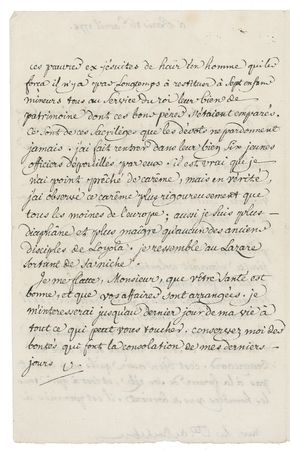 ces pauvres ex jésuites de hair un homme qui les
força il n'y a pas Longtemps à restituer à Sept enfans
mineurs tous au Service du roi leur bien de
patrimoine dont ces bons pères S'étaient emparés.
Ce sont de ces Sacrileges que les dévots ne pardonnent
jamais. j'ai fait rentrer dans leur bien six jeunes
officiers dépouillés par eux. il est vrai que je
n'ai point prêché de carême, mais en vérité,
j'ai observé ce carême plus rigoureusement que
tous les moines de l'europe, aussi je suis plus
diaphane et plus maigre qu'aucun des anciens
disciples de Loyola. je ressemble au Lazare
Sortant de Sa niche.
Je me flatte, Monsieur, que vôtre Santé est
bonne, et que vos affaires Sont arrangées. je
m'interesserai jusqu'au dernier jour de ma vie à
tout ce qui peut vous toucher. conservez moi des
bontés qui font la consolation de mes derniers
jours V